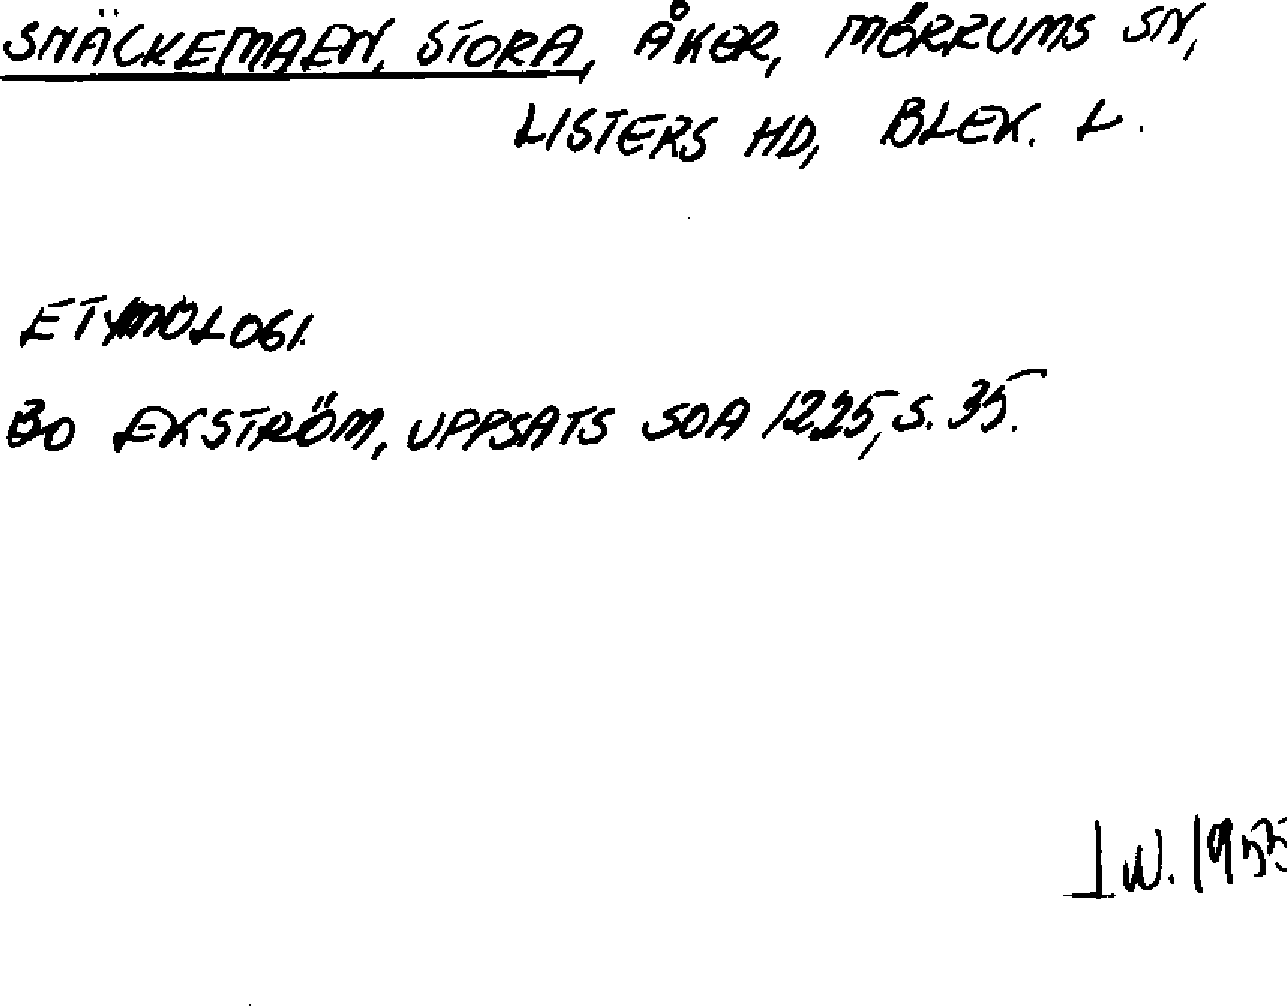 SNÄCKEMAEN, STORA, ÅKER, MÖRRUMS SN,
LISTERS HD, BLEK. L.
ETYMOLOGI.
BO EKSTRÖM, UPPSATS SOA 1225, S. 35.
I W. 1955